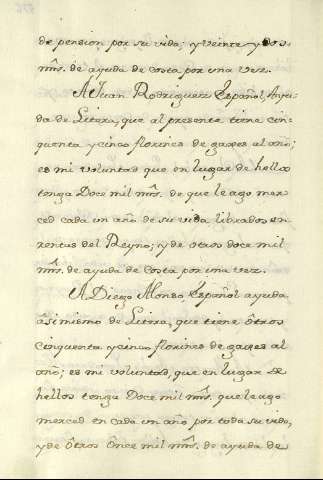 de pension por su vida; y veinte y dos
mil mrs. de ayuda de costa por una vez.
A Juan Rodriguez Español, Ayu
da de Litera, que al presente tiene cin
quenta y cinco florines de gaxes al año;
es mi voluntad que en lugar de hellos
tenga Doce mil mrs. de que le ago mer
ced cada un año de su vida librados en
rentas del Reyno; y de otros doce mil
mrs. de ayuda de Costa por una vez.
A Diego Alonso Español ayuda
asimismo de Litera, que tiene ôtros
Cinquenta y cinco florines de gaxes al
año; es mi voluntad, que en lugar de
hellos tenga Doce mil mrs. que le ago
merced en cada un año por toda su vida,
y de Ôtros Once mil mrs. de ayuda de